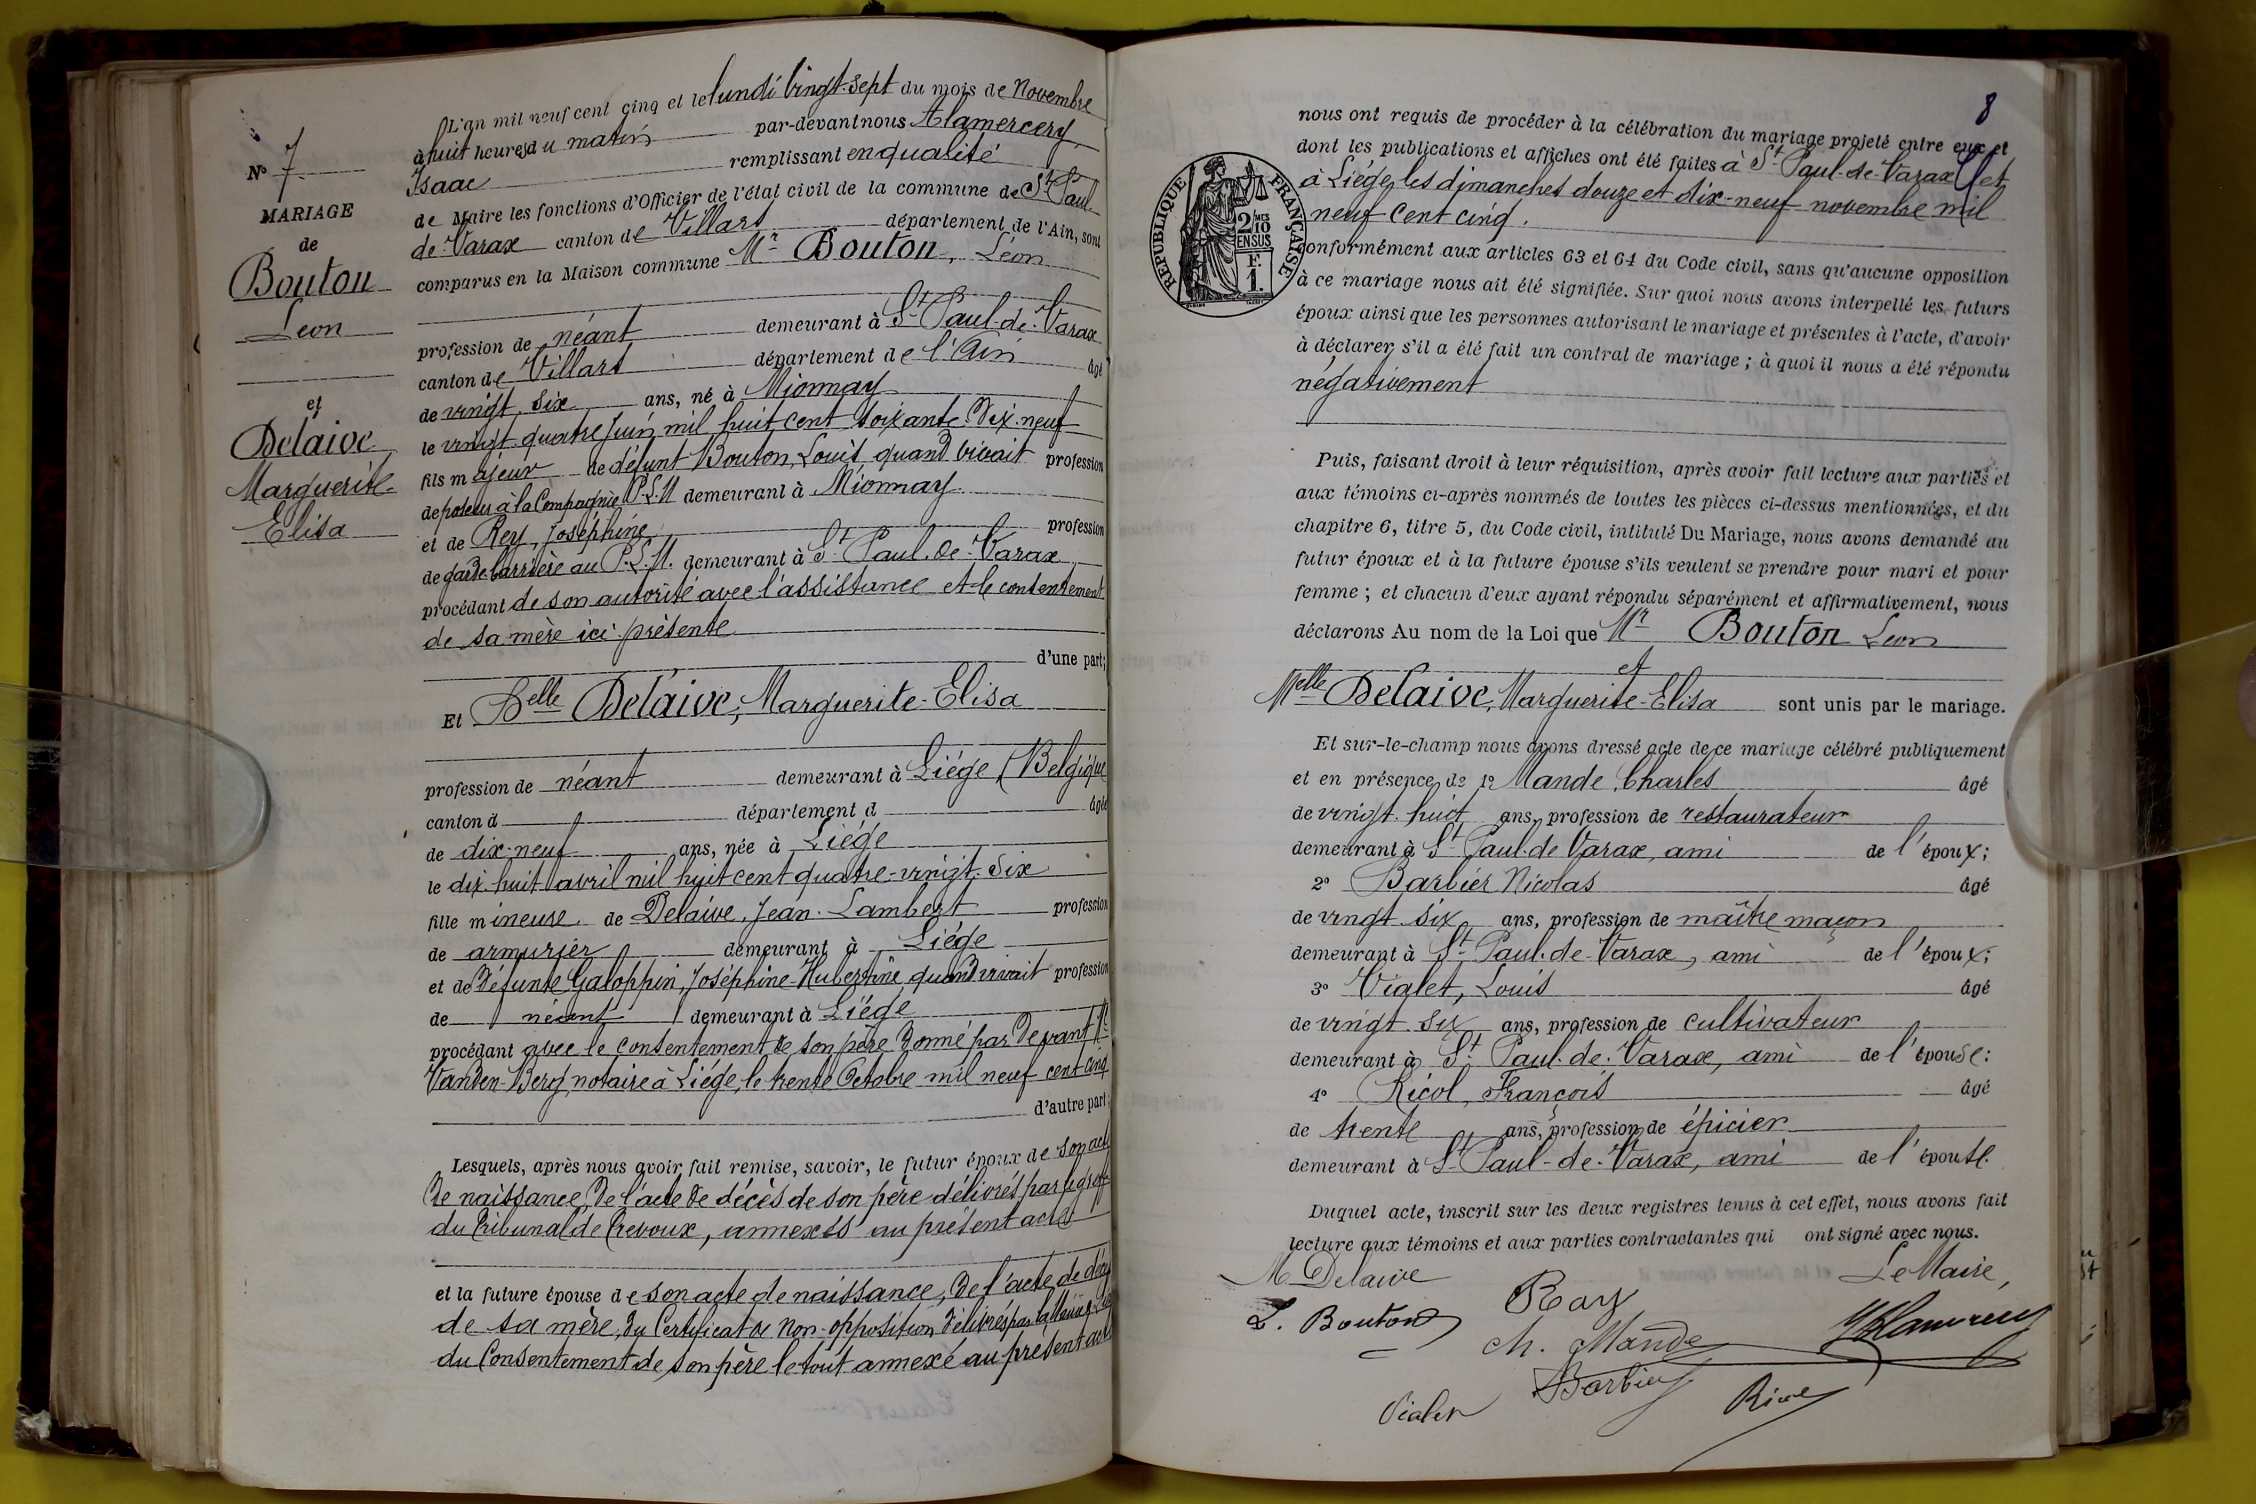 N° 7
MARIAGE
de
Bouton
Léon
et
Delaive
Marguerite-
Elisa
L'an mil neuf cent cinq et le lundi vingt-sept du mois de Novembre
à huit heures du matin par-devant nous Alamercery
Isaac remplissant en qualité
de Maire les fonctions d'Officier de l'état civil de la commune de St Paul-
de-Varax canton de Villars département de l'Ain, sont
comparus en la Maison commune Mr Bouton, Léon
profession de néant demeurant à St Paul-de-Varax
canton de Villars département de l'Ain âgé
de vingt six ans, né à Mionnay
le vingt quatre Juin mil huit cent soixante Dix-neuf
fils majeur de défunt Bouton, Louis quand vivait profession
de poseur à la Compagnie P.L.M demeurant à Mionnay
et de Rey, Joséphine profession
de garde barrière au P.L.M. demeurant à St Paul-de-Varax
procédant de son autorité avec l'assistance et le consentement
de sa mère ici présente
d'une part;
Et Delle Delaive, Marguerite-Elisa
profession de néant demeurant à Liége (Belgique
canton d département d âgée
de dix-neuf ans, née à Liége
le dix huit avril mil huit cent quatre-vingt-six
fille mineure de Delaive, Jean-Lambert profession
de armurier demeurant à Liége
et de Défunte Galoppin, Joséphine-Hubertine, quand vivait profession
de néant demeurant à Liége
procédant avec le consentement de son père Donné par Devant Me
Vanden-Berg, notaire à Liége, le trente Octobre mil neuf cent cinq
d'autre part;
Lesquels, après nous avoir fait remise, savoir, le futur époux de son acte
De naissance, De l'acte De décès de son père délivrés par le greffe
du Tribunal de Trevoux, annexés au présent acte
et la future épouse de son acte de naissance, De l'acte de décès
de sa mère, du Certificat de Non-opposition délivrés par la Mairie de
du Consentement de son père le tout annexé au présent acte
8
RÉPUBLIQUE FRANÇAISE
2/10 MES
EN SUS
F.
1.
nous ont requis de procéder à la célébration du mariage projeté entre eux et
dont les publications et affiches ont été faites à St Paul-de-Varax et
à Liége, les dimanches douze et dix-neuf novembre mil
neuf cent cinq.
conformément aux articles 63 et 64 du Code civil, sans qu'aucune opposition
à ce mariage nous ait été signifiée. Sur quoi nous avons interpellé les futurs
époux ainsi que les personnes autorisant le mariage et présentes à l'acte, d'avoir
à déclarer s'il a été fait un contrat de mariage; à quoi il nous a été répondu
négativement
Puis, faisant droit à leur réquisition, après avoir fait lecture aux parties et
aux témoins ci-après nommés de toutes les pièces ci-dessus mentionnées, et du
chapitre 6, titre 5, du Code civil, intitulé Du Mariage, nous avons demandé au
futur époux et à la future épouse s'ils veulent se prendre pour mari et pour
femme; et chacun d'eux ayant répondu séparément et affirmativement, nous
déclarons Au nom de la Loi que Mr Bouton Léon
et
Melle Delaive, Marguerite-Elisa sont unis par le mariage.
Et sur-le-champ nous avons dressé acte de ce mariage célébré publiquement
et en présence de 1° Mande, Charles âgé
de vingt-huit ans, profession de restaurateur
demeurant à St Paul-de Varax, ami de l'époux;
2° Barbier Nicolas âgé
de vingt six ans, profession de maître maçon
demeurant à St Paul-de-Varax, ami de l'époux;
3° Vialet, Louis âgé
de vingt-six ans, profession de cultivateur
demeurant à St Paul-de-Varax, ami de l'épouse;
4° Ricol, François âgé
de trente ans, profession de épicier
demeurant à St Paul-de-Varax, ami de l'épouse.
Duquel acte, inscrit sur les deux registres tenus à cet effet, nous avons fait
lecture aux témoins et aux parties contractantes qui ont signé avec nous.
M Delaive
Le Maire,
L. Bouton
Rey
ch. Mande
Barbier
Vialet